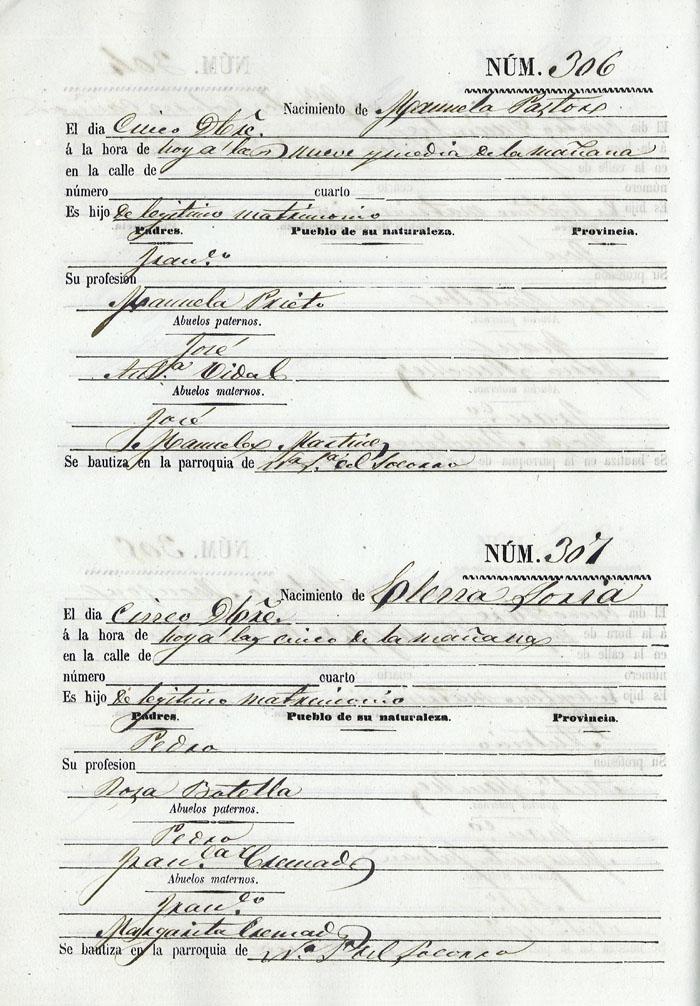 NÚM. 306
Nacimiento de Manuela Pastor
El dia Cinco Dbre.
á la hora de hoy á las nueve y media de la mañana
en la calle de
número cuarto
Es hijo de legitimo matrimonio
Padres. Pueblo de su naturaleza. Provincia.
Fran.co
Su profesion
Manuela Prieto
Abuelos paternos.
José
Ant.a Vidal
Abuelos maternos.
José
Manuela Martinez
Se bautiza en la parroquia de N.a S.a del Socorro
NÚM. 307
Nacimiento de Elena Soria
El dia Cinco Dbre.
á la hora de hoy á las cinco de la mañana
en la calle de
número cuarto
Es hijo de legitimo matrimonio
Padres. Pueblo de su naturaleza. Provincia.
Pedro
Su profesion
Rosa Botella
Abuelos paternos.
Pedro
Fran.ca Cremades
Abuelos maternos.
Fran.co
Margarita Cremades
Se bautiza en la parroquia de N.a S.a del Socorro